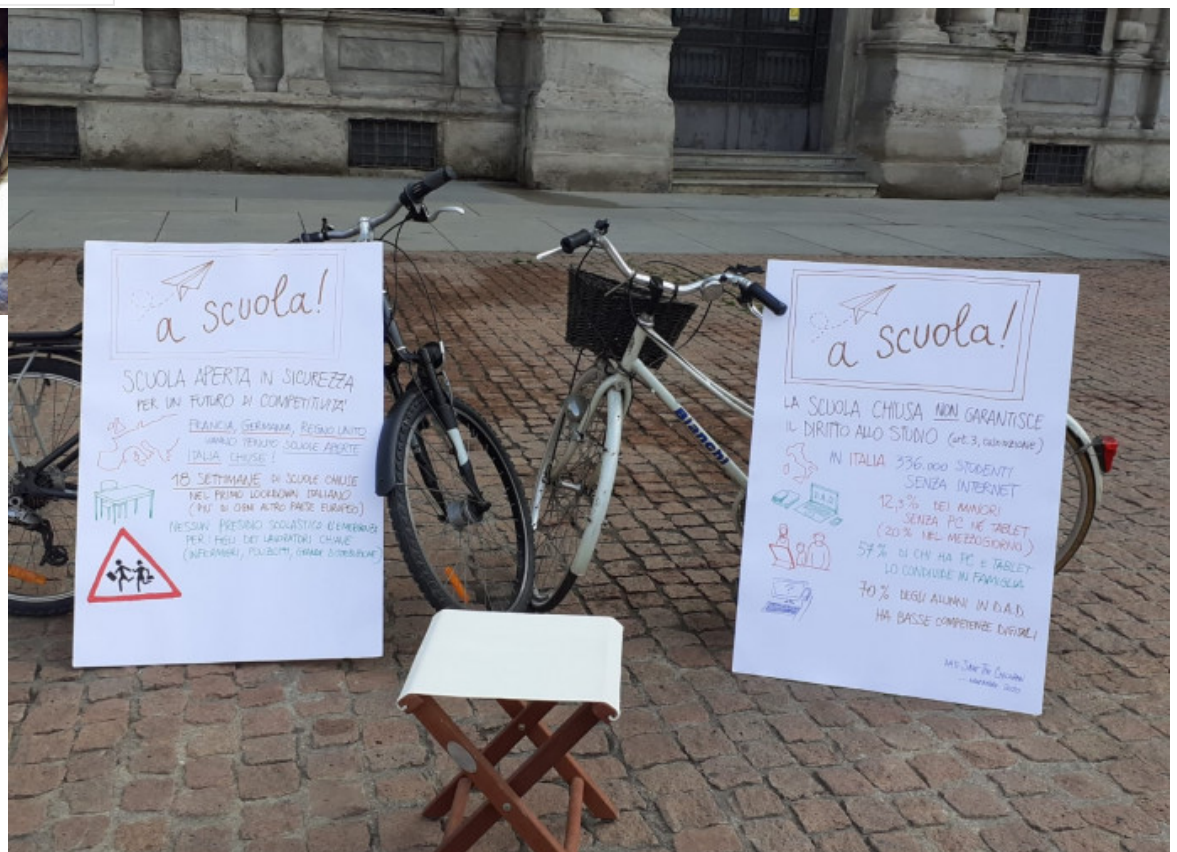 a scuola!
SCUOLA APERTA IN SICUREZZA
PER UN FUTURO DI COMPETITIVITA'
FRANCIA, GERMANIA, REGNO UNITO
HANNO TENUTO SCUOLE APERTE
ITALIA CHIUSE!
18 SETTIMANE DI SCUOLE CHIUSE
NEL PRIMO LOCKDOWN ITALIANO
(PIU' DI OGNI ALTRO PAESE EUROPEO)
NESSUN PRESIDIO SCOLASTICO D'EMERGENZA
PER I FIGLI DEI LAVORATORI CHIAVE
(INFERMIERI, POLIZIOTTI, GRANDE DISTRIBUZIONE)
Bianchi
a scuola!
LA SCUOLA CHIUSA NON GARANTISCE
IL DIRITTO ALLO STUDIO (art. 3, costituzione)
IN ITALIA 336.000 STUDENTI
SENZA INTERNET
12,3% DEI MINORI
SENZA PC NÉ TABLET
(20% NEL MEZZOGIORNO)
57% DI CHI HA PC E TABLET
LO CONDIVIDE IN FAMIGLIA
70% DEGLI ALUNNI IN D.A.D.
HA BASSE COMPETENZE DIGITALI
2020